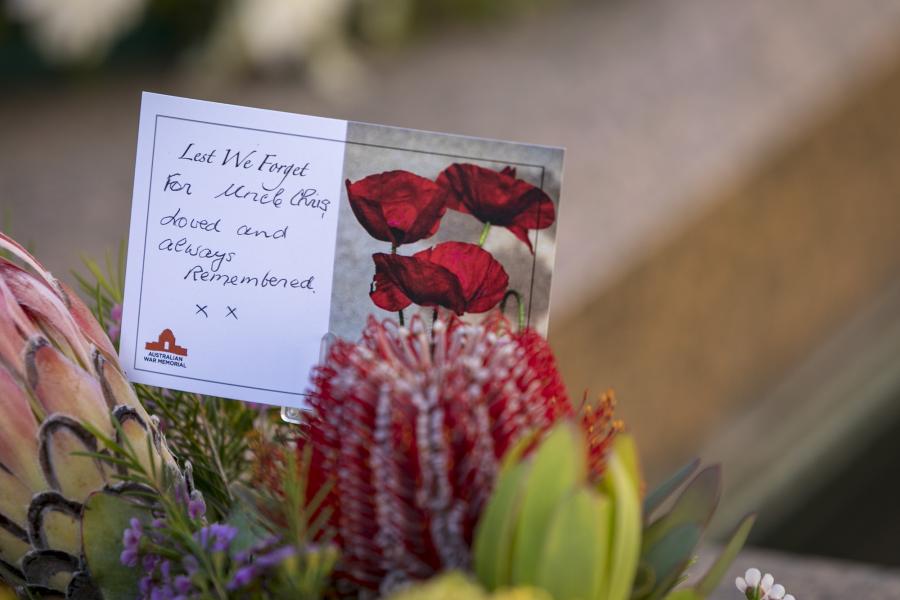 Lest We Forget
For Uncle Chris
Loved and
always
Remembered.
x x
AUSTRALIAN
WAR MEMORIAL